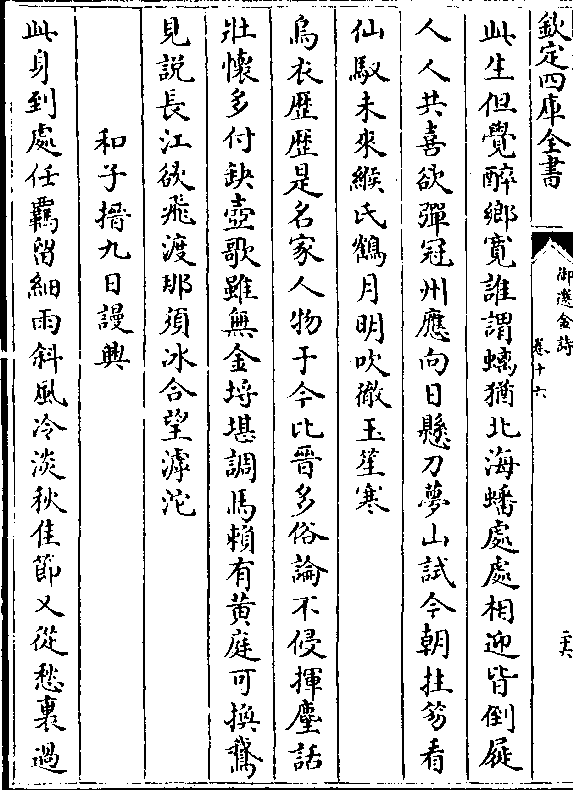 欽定四庫全書
御選金詩
卷十六
二六
此生但覺醉鄉寛誰謂螭猶北海蟠處處相迎皆倒屣
人人共喜欲彈冠州應向日懸刀夢山試今朝拄笏看
仙馭未來緱氏鶴月明吹徹玉笙寒
烏衣歴歴是名家人物于今比晉多俗論不侵揮麈話
壯懷多付缺壺歌雖無金埒堪調馬頼有黄庭可換鵞
見説長江欲飛渡那須冰合望滹沱
和子搢九日謾興
此身到處任羈留細雨斜風冷淡秋佳節又從愁裏過